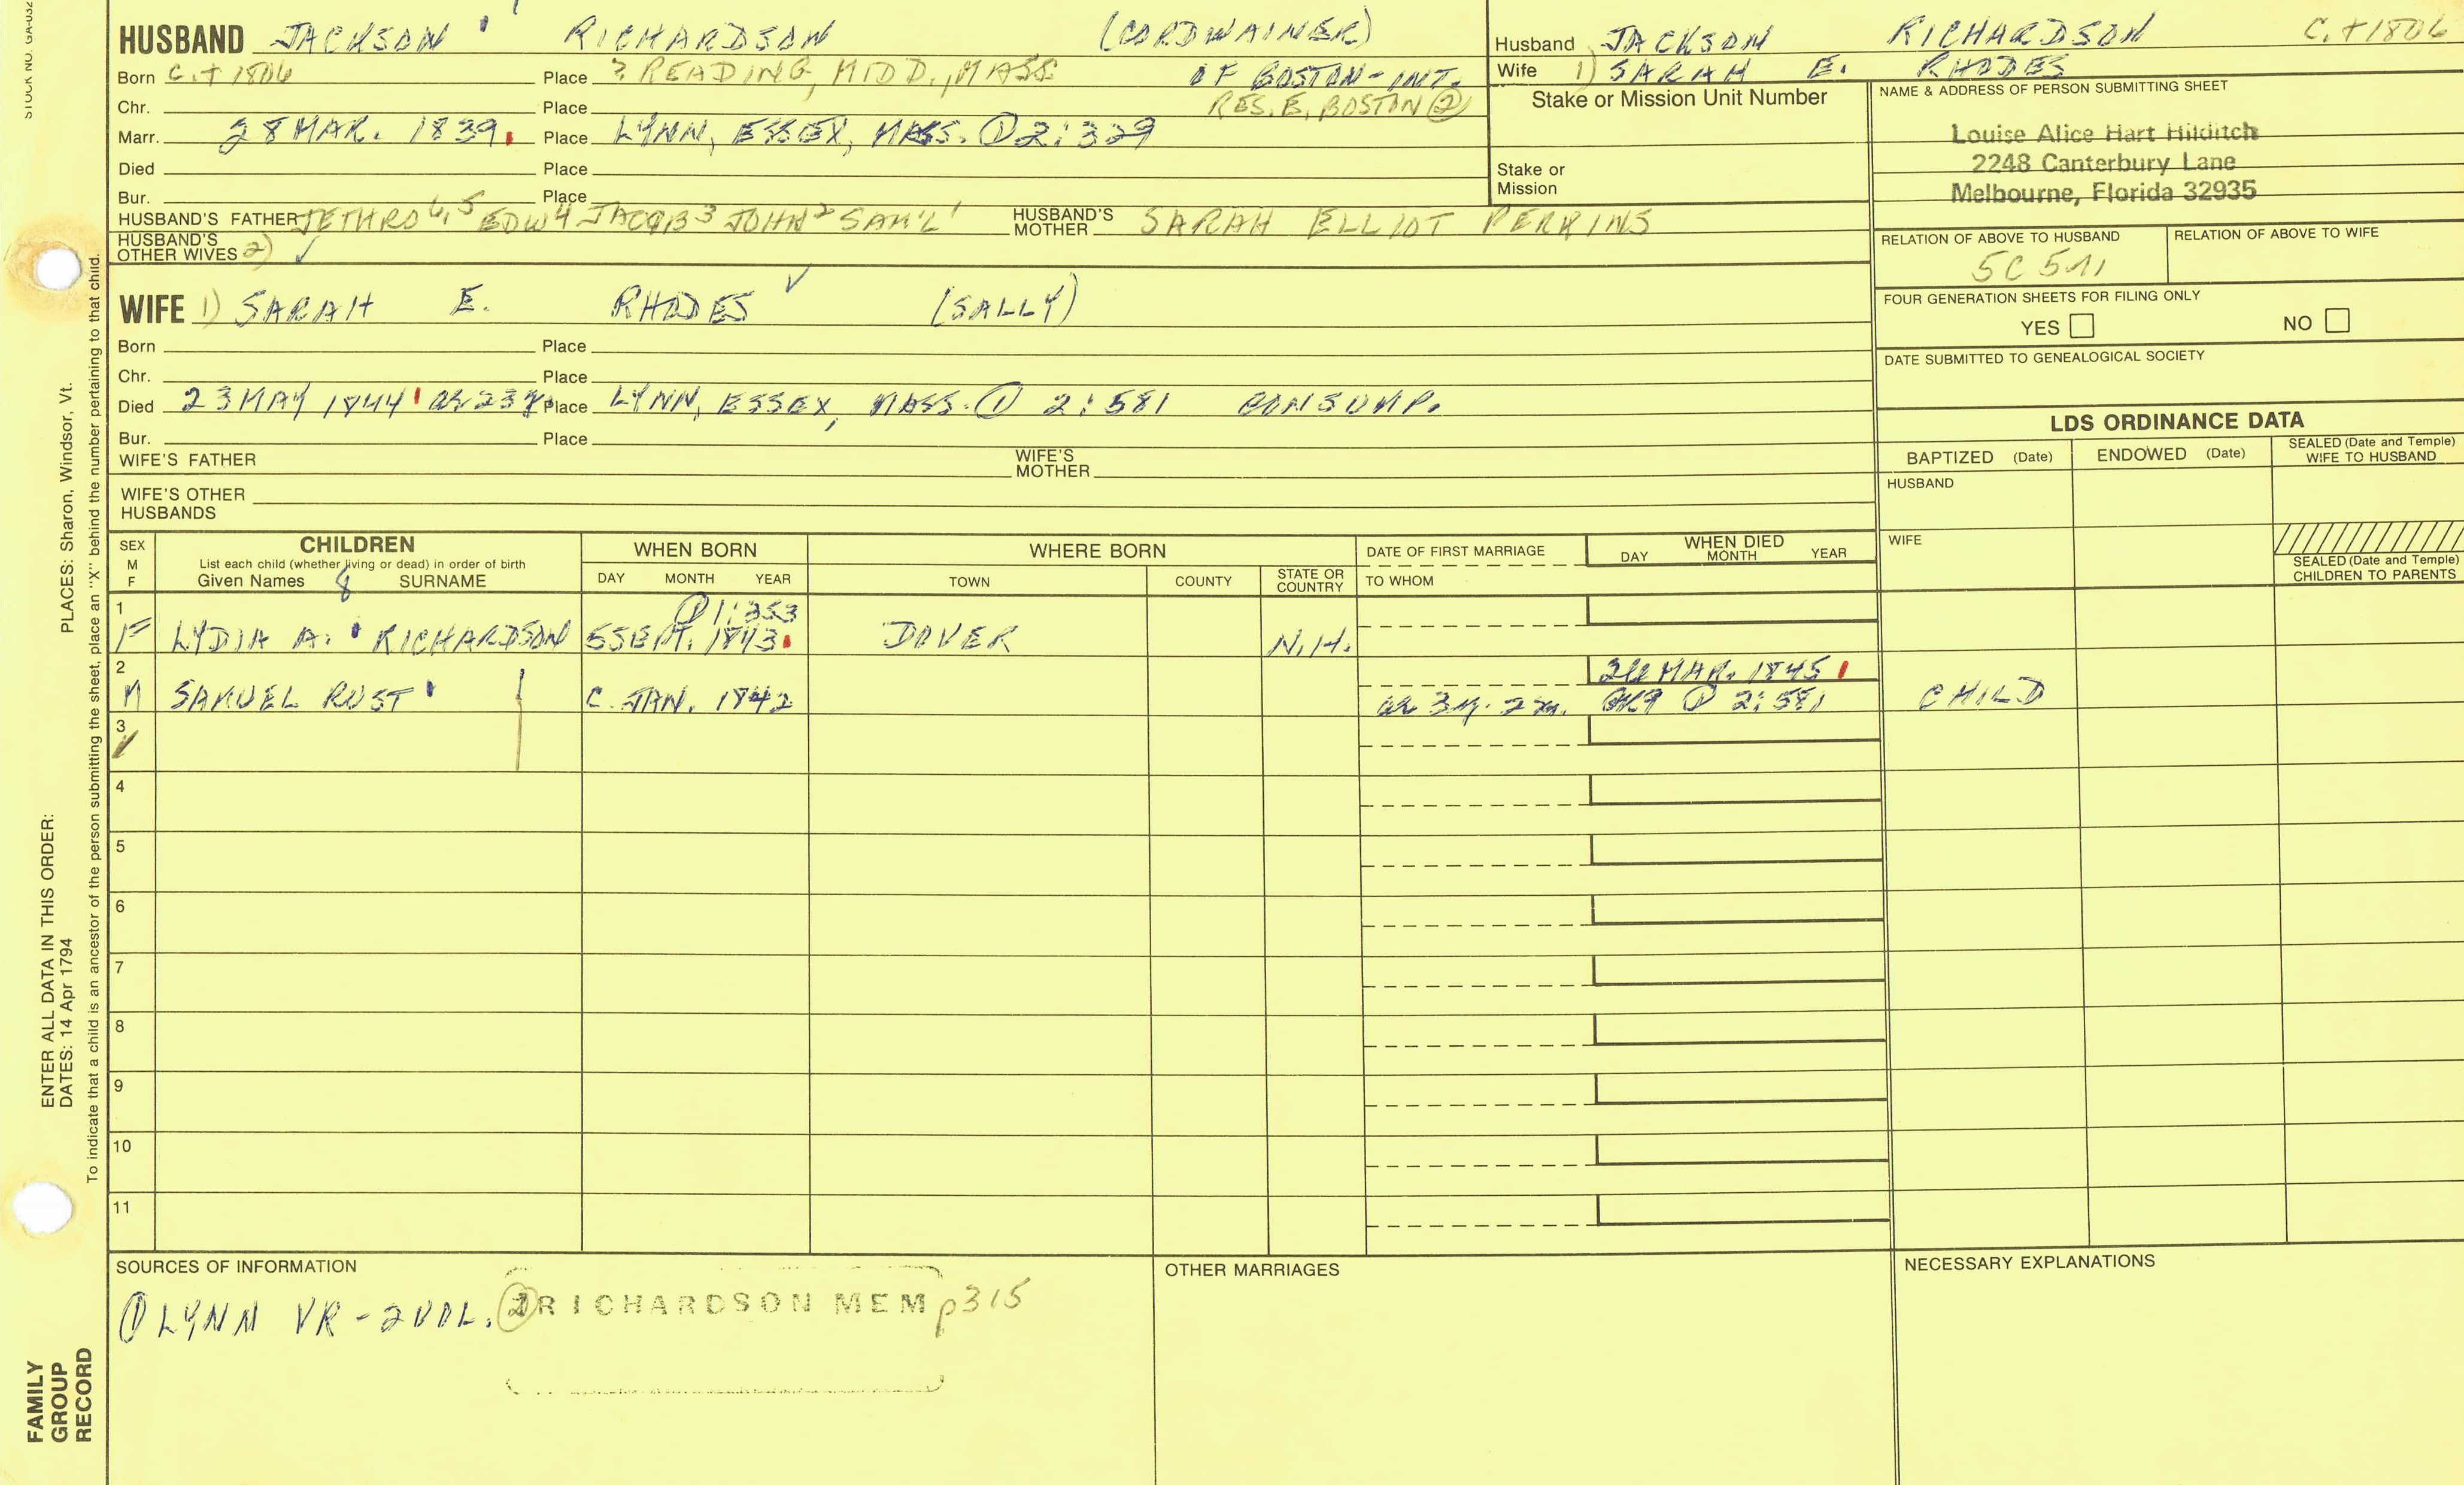 STOCK NO. GA-032
PLACES: Sharon, Windsor, Vt.
ENTER ALL DATA IN THIS ORDER:
DATES: 14 Apr 1794
To indicate that a child is an ancestor of the person submitting the sheet, place an "X" behind the number pertaining to that child.
FAMILY
GROUP
RECORD
HUSBAND JACKSON RICHARDSON (CORDWAINER)
Born C.+1806 Place ? READING, MIDD., MASS OF BOSTON-INT.
Chr. Place RES. E. BOSTON ②
Marr. 28 MAR. 1839. Place LYNN, ESSEX, MASS. ① 2:329
Died Place
Bur. Place
HUSBAND'S FATHER JETHRO 6,5 EDW 4 JACOB 3 JOHN 2 SAM'L 1 HUSBAND'S MOTHER SARAH ELLIOT PERKINS
HUSBAND'S OTHER WIVES 2) ✓
WIFE 1) SARAH E. RHODES ✓ (SALLY)
Born Place
Chr. Place
Died 23 MAY 1844 ae 23y. Place LYNN, ESSEX, MASS. ① 2:581 CONSUMP.
Bur. Place
WIFE'S FATHER WIFE'S MOTHER
WIFE'S OTHER HUSBANDS
Husband JACKSON RICHARDSON C.+1806
Wife 1) SARAH E. RHODES
Stake or Mission Unit Number
Stake or Mission
NAME & ADDRESS OF PERSON SUBMITTING SHEET
Louise Alice Hart Hilditch
2248 Canterbury Lane
Melbourne, Florida 32935
RELATION OF ABOVE TO HUSBAND RELATION OF ABOVE TO WIFE
5C 5
FOUR GENERATION SHEETS FOR FILING ONLY
YES NO
DATE SUBMITTED TO GENEALOGICAL SOCIETY
LDS ORDINANCE DATA
BAPTIZED (Date) ENDOWED (Date) SEALED (Date and Temple) WIFE TO HUSBAND
HUSBAND
WIFE
SEALED (Date and Temple) CHILDREN TO PARENTS
SEX M F
CHILDREN
List each child (whether living or dead) in order of birth
Given Names 8 SURNAME
WHEN BORN
DAY MONTH YEAR
WHERE BORN
TOWN COUNTY STATE OR COUNTRY
DATE OF FIRST MARRIAGE
TO WHOM
WHEN DIED
DAY MONTH YEAR
1 ① 1:353
F LYDIA A. RICHARDSON 5 SEPT. 1843. DOVER N.H.
2 MAR. 1845
M SAMUEL RUST C. JAN. 1842 ae 3y. 2m. ① 2:581 CHILD
3
✓
4
5
6
7
8
9
10
11
SOURCES OF INFORMATION
① LYNN VR-2VOL. ② RICHARDSON MEM p315
OTHER MARRIAGES
NECESSARY EXPLANATIONS